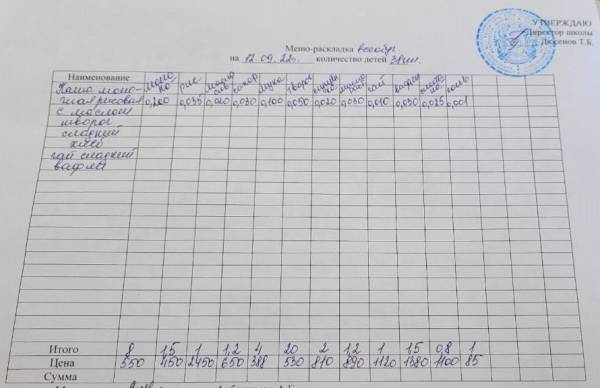 УТВЕРЖДАЮ
Директор школы
Дюсенов Т.Б.
Меню-раскладка всеобуч
на 12.09.22г. количество детей
Наименование молоко рис сахар мука творог чай вафли соль
Каша моло-
чная рисовая 0,200 0,035 0,020 0,030 0,100 0,050 0,020 0,030 0,010 0,030 0,025 0,001
с маслом
творог
сладкий
хлеб
чай сладкий
вафли
Итого 8 1,5 1 1,2 4 20 2 1,2 1 1,5 0,8 1
Цена 550 450 2450 650 388 530 810 890 1120 1380 1100 85
Сумма